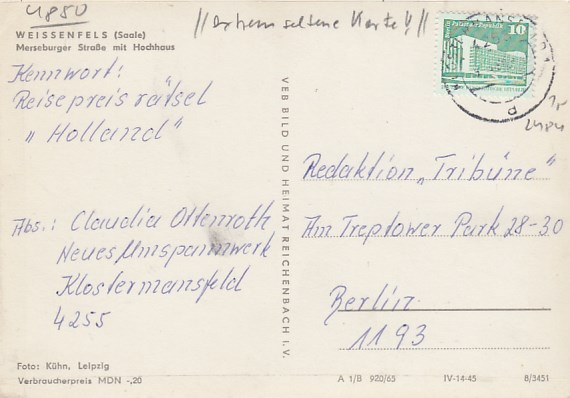 4850
//extrem seltene Karte!!//
WEISSENFELS (Saale)
Merseburger Straße mit Hochhaus
10
Kennwort:
Reisepreisrätsel
„Holland"
Abs.: Claudia Ottenroth
Neues Umspannwerk
Klostermansfeld
4255
VEB BILD UND HEIMAT REICHENBACH I. V.
15
2484
Redaktion „Tribüne"
Am Treptower Park 28-30
Berlin
1193
Foto: Kühn, Leipzig
Verbraucherpreis MDN -,20
A 1/B 920/65 IV-14-45 8/3451